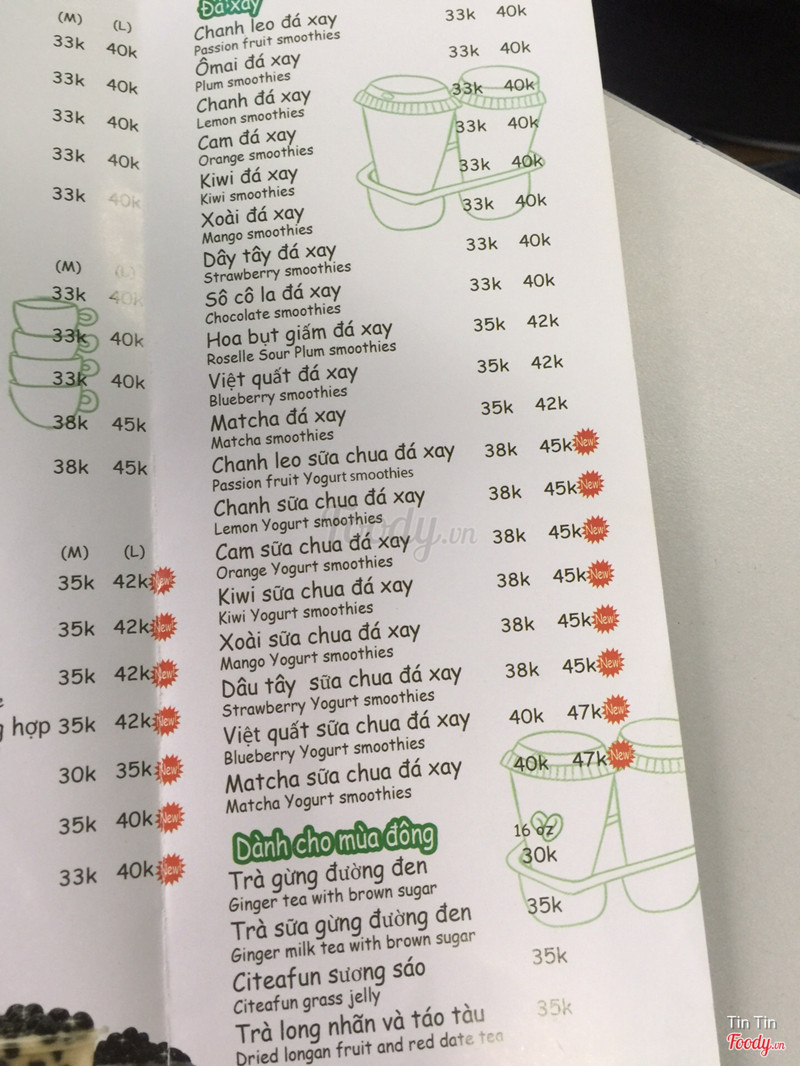 (M) (L)
33k 40k
33k 40k
33k 40k
33k 40k
33k 40k
(M) (L)
33k 40k
33k 40k
33k 40k
38k 45k
38k 45k
(M) (L)
35k 42k New!
35k 42k New!
35k 42k New!
hợp 35k 42k New!
30k 35k New!
35k 40k New!
33k 40k New!
Đá xay
Chanh leo đá xay 33k 40k
Passion fruit smoothies
Ômai đá xay 33k 40k
Plum smoothies
Chanh đá xay 33k 40k
Lemon smoothies
Cam đá xay 33k 40k
Orange smoothies
Kiwi đá xay 33k 40k
Kiwi smoothies
Xoài đá xay 33k 40k
Mango smoothies
Dây tây đá xay 33k 40k
Strawberry smoothies
Sô cô la đá xay 33k 40k
Chocolate smoothies
Hoa bụt giấm đá xay 35k 42k
Roselle Sour Plum smoothies
Việt quất đá xay 35k 42k
Blueberry smoothies
Matcha đá xay 35k 42k
Matcha smoothies
Chanh leo sữa chua đá xay 38k 45k New!
Passion fruit Yogurt smoothies
Chanh sữa chua đá xay 38k 45k New!
Lemon Yogurt smoothies
Cam sữa chua đá xay 38k 45k New!
Orange Yogurt smoothies
Kiwi sữa chua đá xay 38k 45k New!
Kiwi Yogurt smoothies
Xoài sữa chua đá xay 38k 45k New!
Mango Yogurt smoothies
Dâu tây sữa chua đá xay 38k 45k New!
Strawberry Yogurt smoothies
Việt quất sữa chua đá xay 40k 47k New!
Blueberry Yogurt smoothies
Matcha sữa chua đá xay 40k 47k New!
Matcha Yogurt smoothies
Dành cho mùa đông 16 oz
Trà gừng đường đen 30k
Ginger tea with brown sugar
Trà sữa gừng đường đen 35k
Ginger milk tea with brown sugar
Citeafun sương sáo 35k
Citeafun grass jelly
Trà long nhãn và táo tàu 35k
Dried longan fruit and red date tea
Foody.vn
Tin Tin
Foody.vn